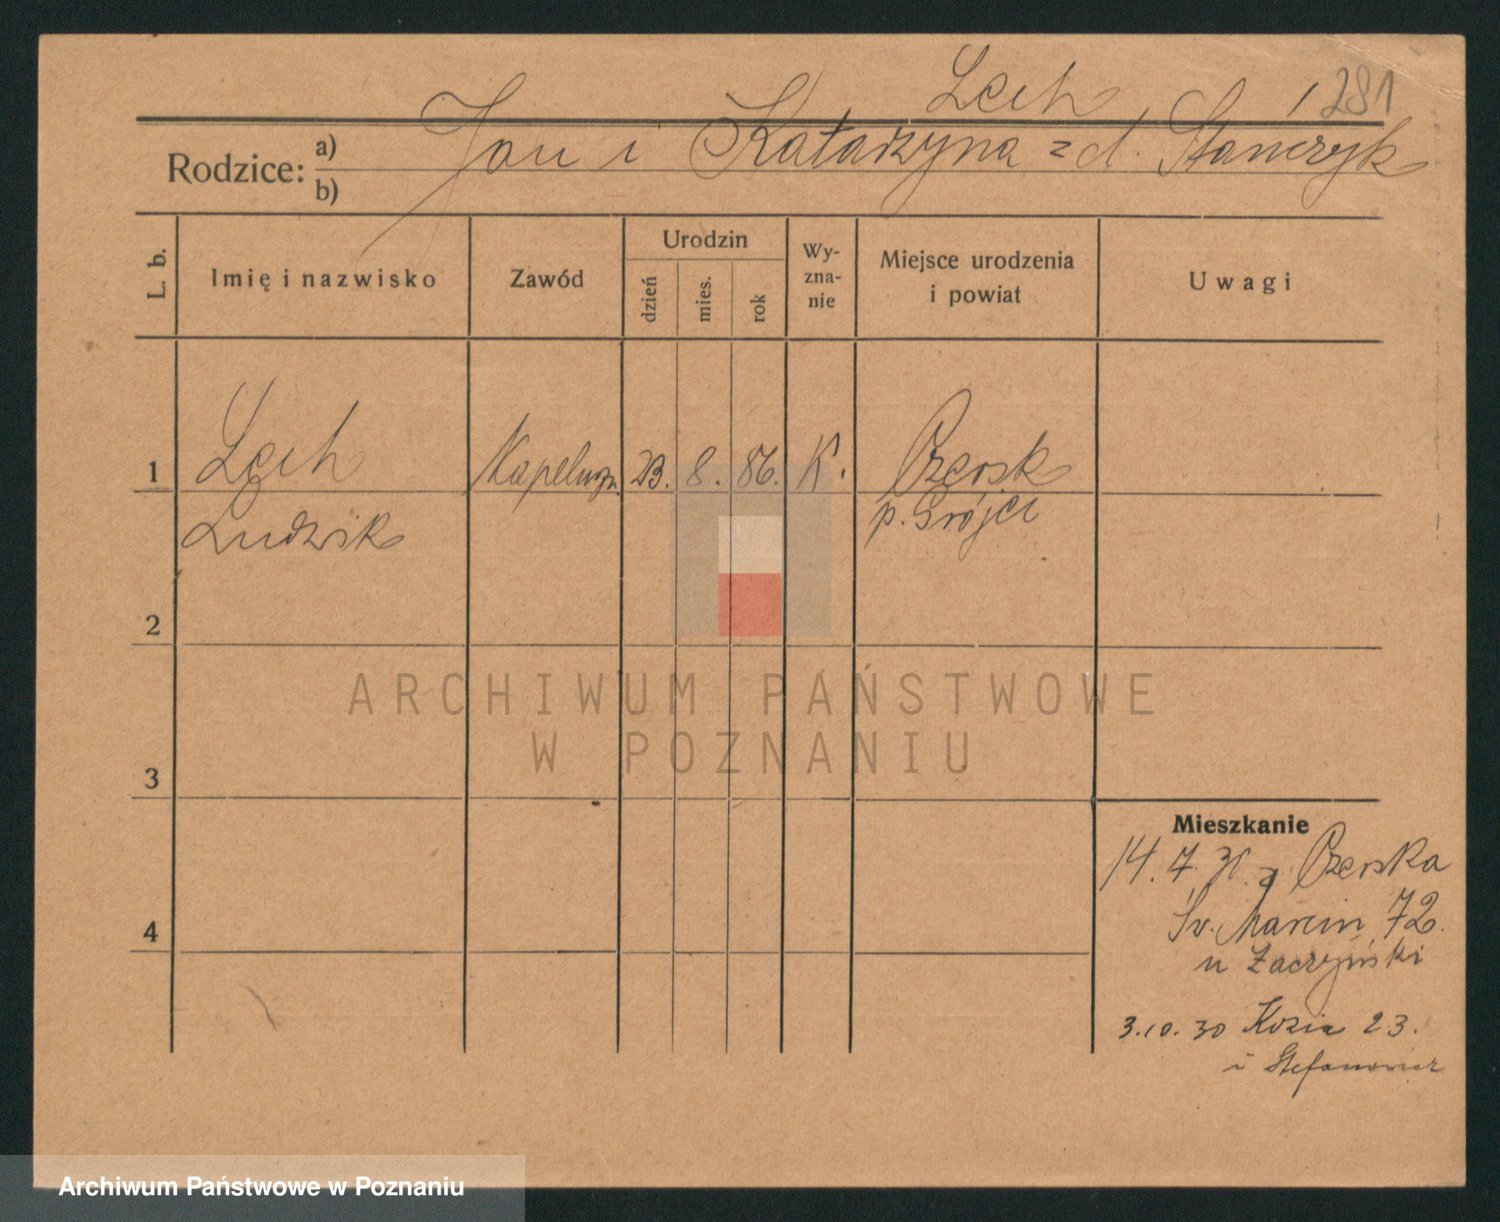 Lech
281
Rodzice: a) Jan i Katarzyna z d. Stańczyk
b)
L. b.
Imię i nazwisko
Zawód
Urodzin
dzień
mies.
rok
Wy-
zna-
nie
Miejsce urodzenia
i powiat
Uwagi
1 Lech Kapelusz. 23. 8. 86. K. Czersk
Ludwik p. Grójec
2
3
4
Mieszkanie
14.7.30. z Czerska
Św. Marcin 72.
u Zaczyński
3.10.30 Kozia 23.
u Stefanowicz
ARCHIWUM PAŃSTWOWE
W POZNANIU
Archiwum Państwowe w Poznaniu